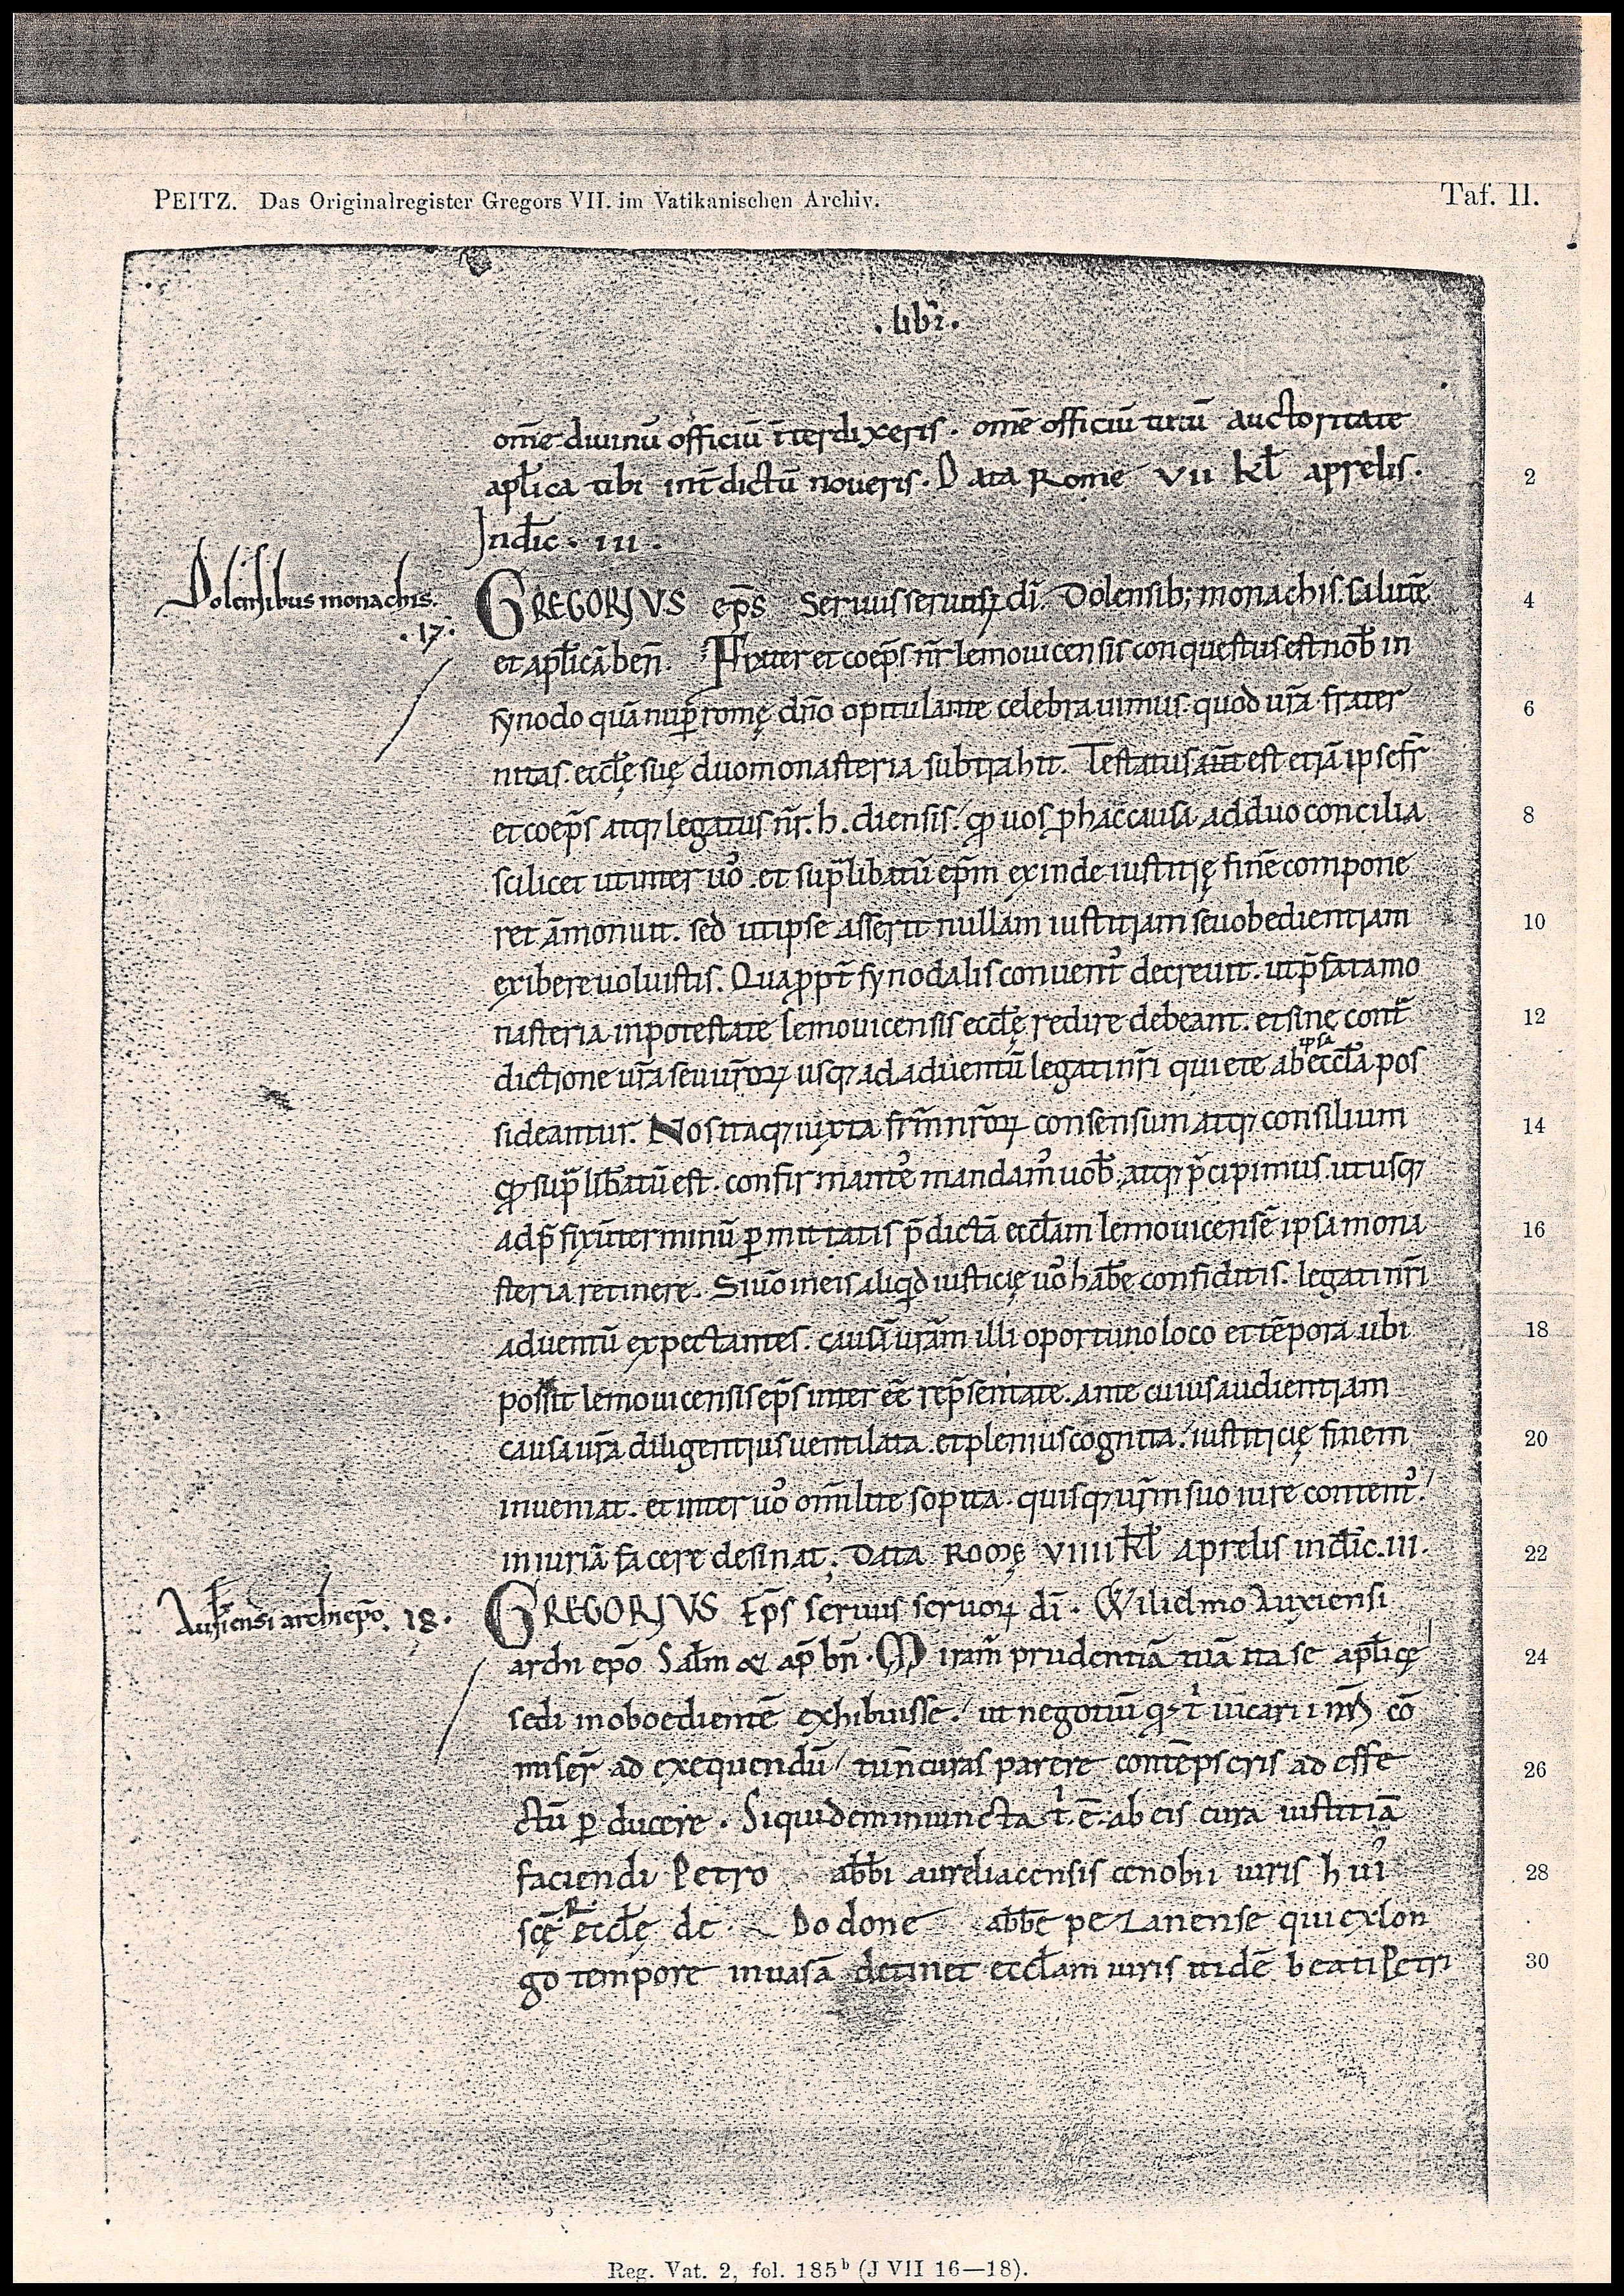 PEITZ. Das Originalregister Gregors VII. im Vatikanischen Archiv.
Taf. II.
. libri.
om̄e diuinū officiū īterdixeris. om̄e officiū tuū auctoritate
apl̄ica tibi int̄dictū noueris. Data Rome VII kl̄ aprelis. 2
Indic̄. III.
Dolensibus monachis.
.17.
GREGORIVS ep̄s Seruus seruoꝝ dī. Dolensib; monachis. salutē 4
et apl̄icā ben̄. Frater et coep̄s n̄r lemouicensis conquestus est nob̄ in
synodo quā nup̄ romę dn̄o opitulante celebrauimus. quod ur̄a frater 6
nitas. eccl̄ę suę duo monasteria subtrahit. Testatus aūt est etiā ipse fr̄
et coep̄s atq; legatus n̄r. h. diensis. qđ uos ꝑ hac causa ad duo concilia 8
scilicet ut inter uo᾽ et sup̄libatū ep̄m exinde iustitię finē compone
ret āmonuit. sed ut ipse asserit nullam iustitiam seu obedientiam 10
exibere uoluistis. Quapropt̄ synodalis conuent᾽ decreuit. ut p̄fata mo
nasteria in potestate lemouicensis eccl̄ę redire debeant. et sine cont̄ 12
dictione ur̄a seu ur̄oꝝ usq; ad aduentū legati nr̄i quiete ab ipsa eccl̄a pos
sideantur. Nos itaq; iuxta fr̄m nr̄oꝝ consensum atq; consilium 14
qđ sup̄libatū est. confirmantes mandam᾽ uob̄. atq; p̄cipimus. ut usq;
ad p̄fixū terminū ꝑmittatis p̄dictā eccl̄am lemouicensē ipsa mona 16
steria retinere. Si uo᾽ in eis aliqd iusticię uo᾽ hab̄e confiditis. legati nr̄i
aduentū expectantes. causā ur̄am illi oportuno loco et tēpora ubi 18
possit lemouicensis ep̄s inter eē rep̄sentate. ante cuius audientiam
causa ur̄a diligentius uentilata. et plenius cognita. iustiticię finem 20
inueniat. et inter uo᾽ omī lite sopita. quisq; ur̄m suo iure content᾽.
iniuriā facere desinat. Data Romę VIIII kl̄ aprelis indic̄. III. 22
Auxiensi archiep̄o. 18.
GREGORIVS Ep̄s seruus seruoꝝ dī. Wilielmo Auxiensi
archi ep̄o Sal̄m & ap̄ bn̄. Miram̄ prudentiā tuā ita se apl̄icę 24
sedi inoboedientē exhibuisse. ut negotiū qđ t᾽ uicarii nr̄i cō
miser̄ ad exequendū tu n̄ curas parere contēpseris ad effe 26
ctū ꝑducere. Siquidem iniuncta t᾽. ē. ab eis cura iustitiā
faciendi Petro abb̄i aureliacensis cenobii iuris hui᾽ 28
scę R eccl̄ę de Dodone abb̄e pezanense qui ex lon
go tempore inuasā detinet eccl̄am iuris itidē beati Petri 30
Reg. Vat. 2, fol. 185ᵇ (J VII 16—18).